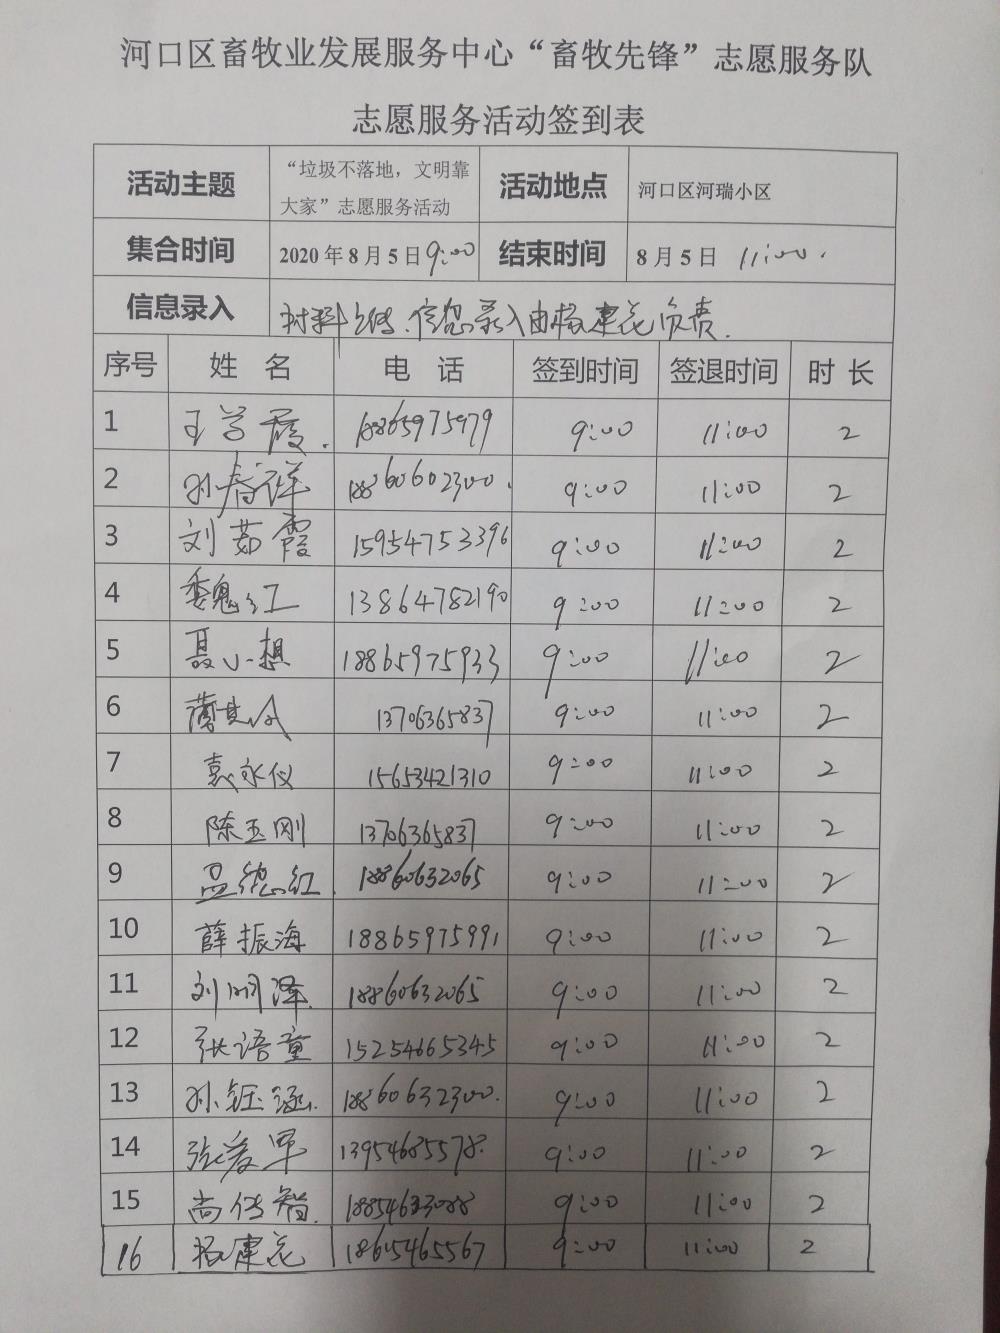 河口区畜牧业发展服务中心“畜牧先锋”志愿服务队
志愿服务活动签到表
活动主题 “垃圾不落地，文明靠大家”志愿服务活动 活动地点 河口区河瑞小区
集合时间 2020年8月5日 9:00 结束时间 8月5日 11:00.
信息录入 材料上传、信息录入由杨建花负责.
序号 姓名 电话 签到时间 签退时间 时长
1 王学霞. 18865975979 9:00 11:00 2
2 孙春祥 9:00 11:00 2
3 刘茹霞 15954753396 9:00 11:00 2
4 魏红 13864782190 9:00 11:00 2
5 聂小想 18865975933 9:00 11:00 2
6 13706365837 9:00 11:00 2
7 袁永仪 15653421310 9:00 11:00 2
8 陈玉刚 13706365837 9:00 11:00 2
9 孟德红. 18860632065 9:00 11:00 2
10 薛振海 18865975991 9:00 11:00 2
11 刘润泽. 18860632065 9:00 11:00 2
12 张语童 15254665345 9:00 11:00 2
13 孙钰涵. 18860632300. 9:00 11:00 2
14 张爱军 13954685578. 9:00 11:00 2
15 尚传智. 9:00 11:00 2
16 杨建花 18615465567 9:00 11:00 2